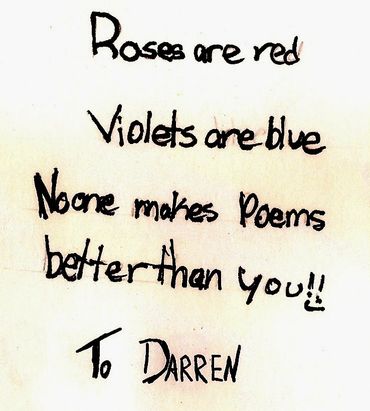 Roses are red
Violets are blue
No one makes Poems
better than you!!
To DARREN